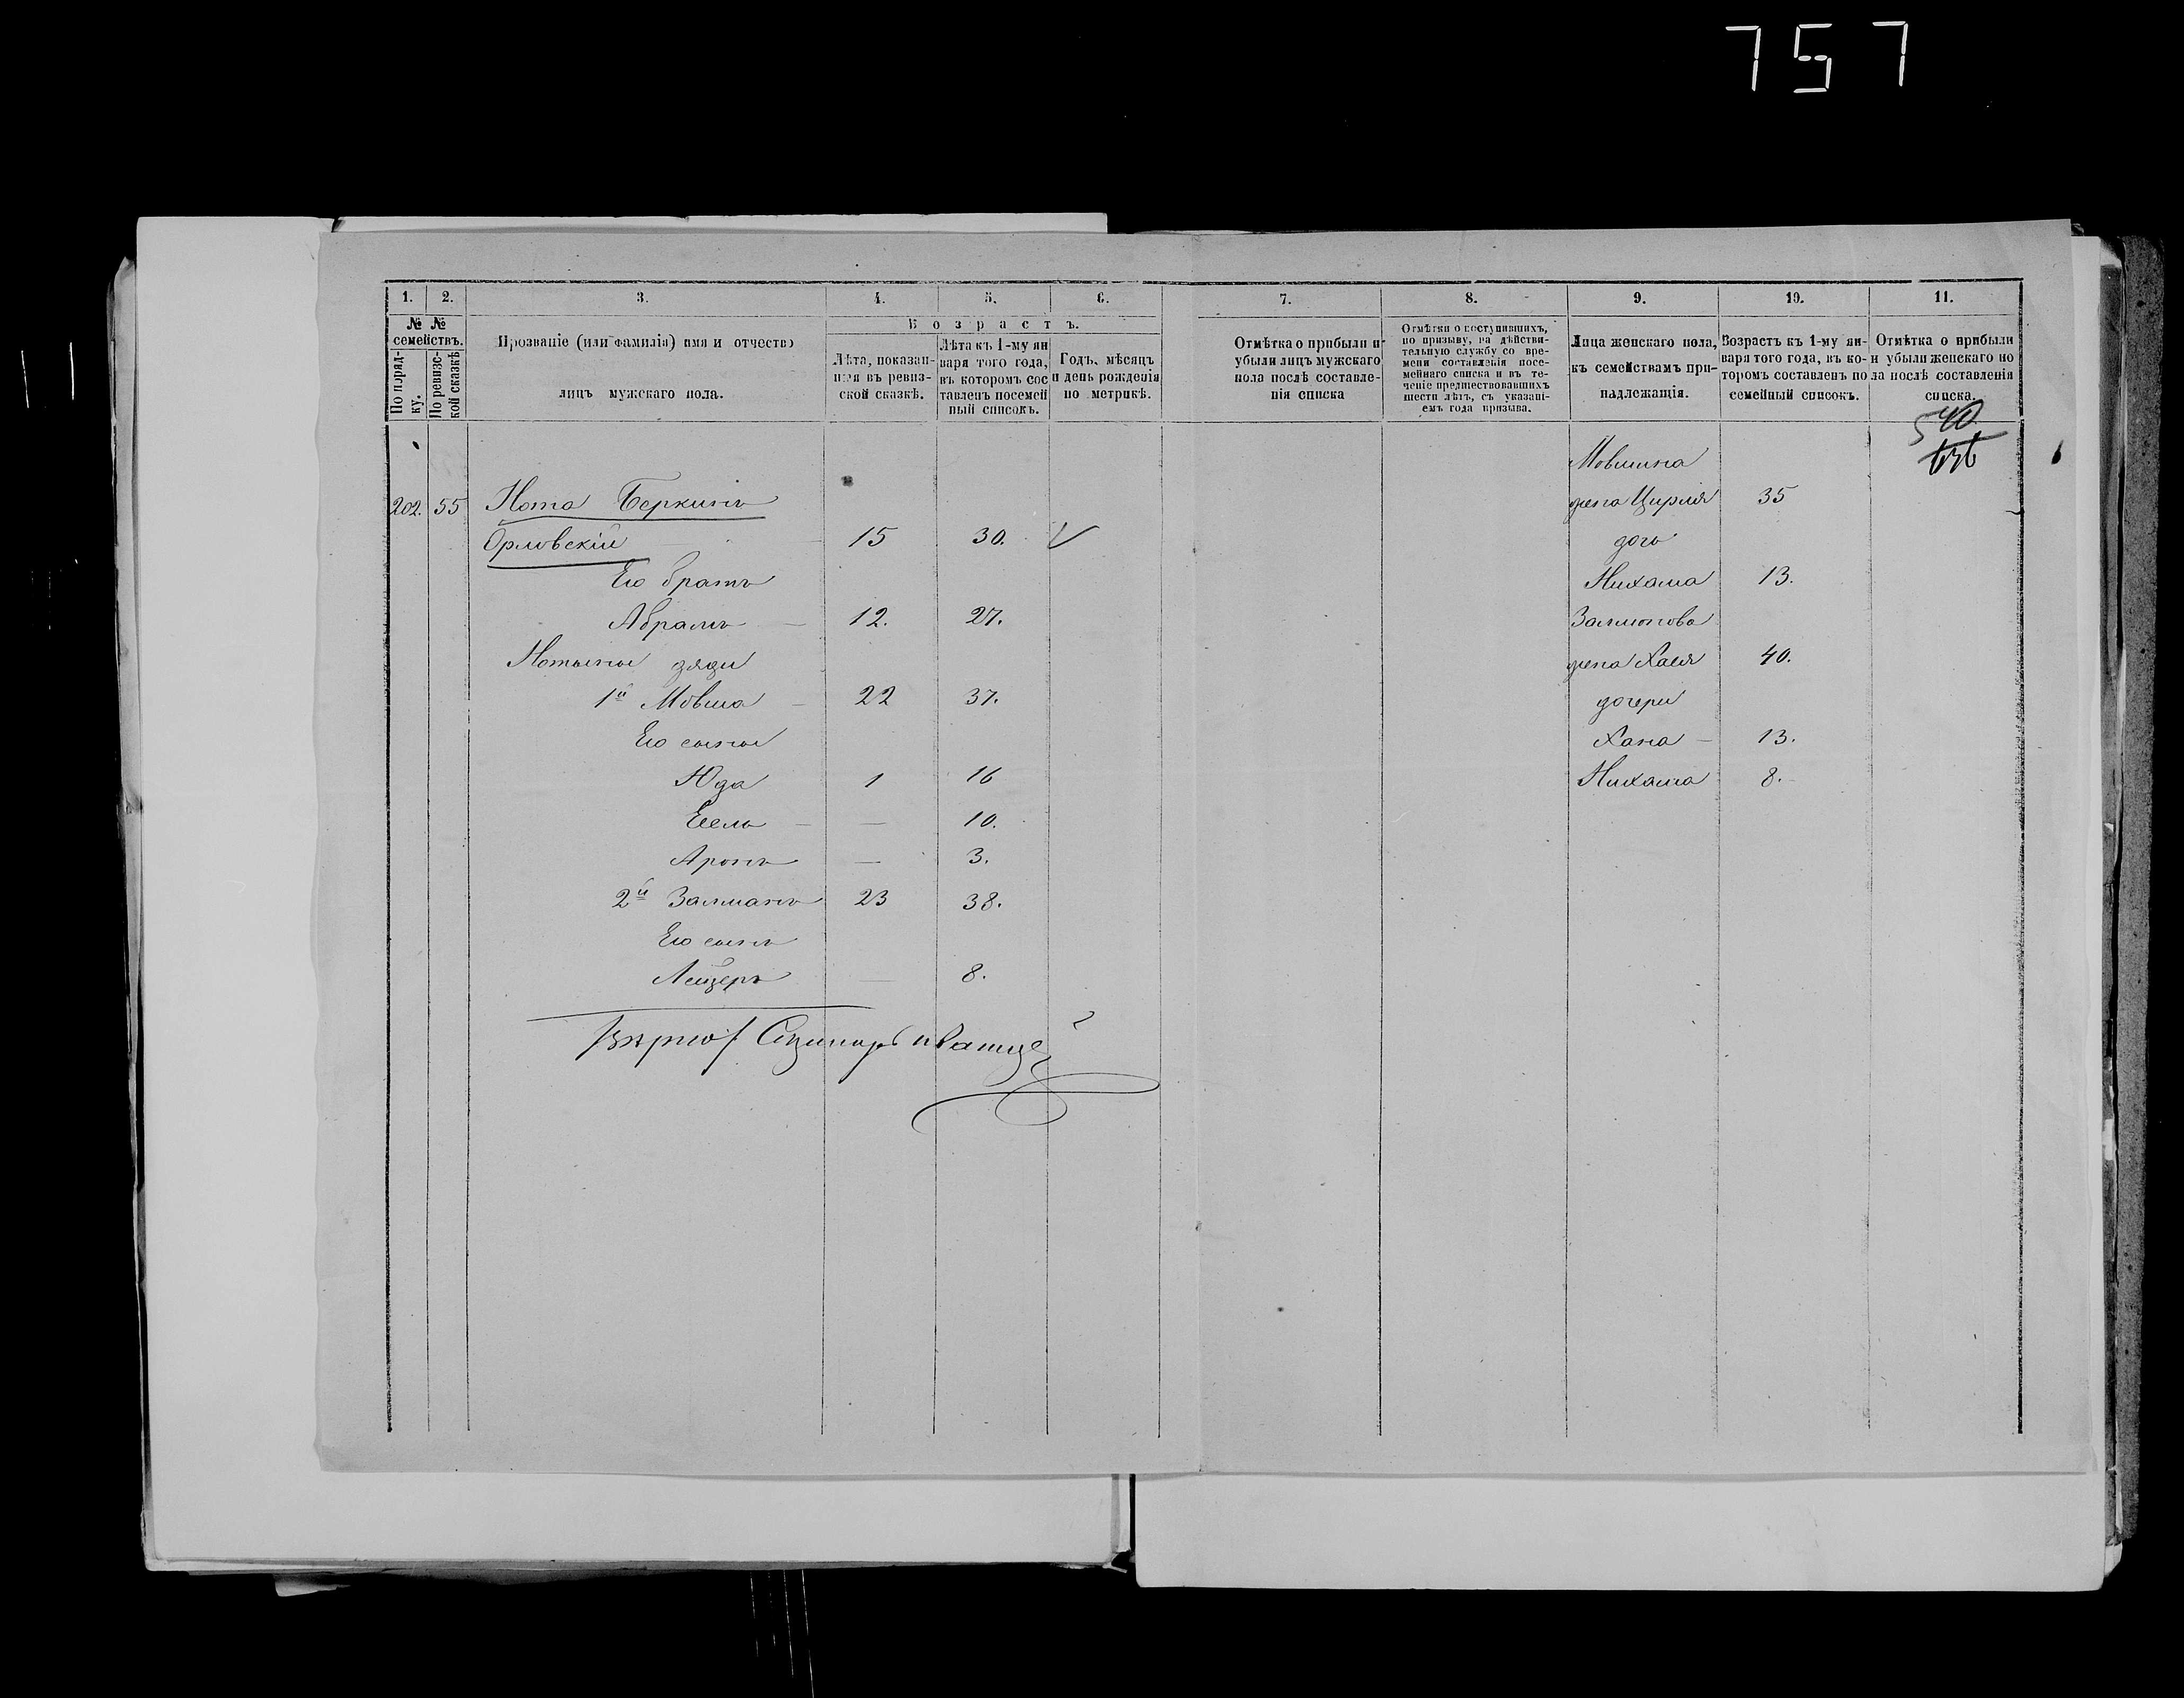 757
1. 2. 3. 4. 5. 6. 7. 8. 9. 10. 11.
№ №
семействъ.
По порядку.
По ревизской сказкѣ
Прозваніе (или фамилія) имя и отчество
лицъ мужскаго пола.
Возрастъ.
Лѣта, показан-
ныя въ ревиз-
ской сказкѣ.
Лѣта къ 1-му ян
варя того года,
въ которомъ сос
тавленъ посемей
ный списокъ.
Годъ, мѣсяцъ
и день рожденія
по метрикѣ.
Отмѣтка о прибыли и
убыли лицъ мужскаго
пола послѣ составле-
нія списка
Отмѣтки о поступившихъ,
по призыву, на дѣйстви-
тельную службу со вре-
мени составленія посе-
мейнаго списка и въ те-
ченіе предшествовавшихъ
шести лѣтъ, съ указані-
емъ года призыва.
Лица женскаго пола,
къ семействамъ при-
надлежащія.
Возрастъ къ 1-му ян-
варя того года, въ ко-
торомъ составленъ по
семейный списокъ.
Отмѣтка о прибыли
и убыли женскаго по
ла послѣ составленія
списка.
540
Мовшина
202. 55 Нота Беркинъ жена Цирля 35
Орловскій 15 30. дочь
Его братъ Нихама 13.
Абрамъ 12. 27. Залмонова
Нотыны дяди жена Хася 40.
1й Мовша 22 37. дочери
Его сыны Хана 13.
Юда 1 16 Нихама 8.
Есель — 10.
Аронъ — 3.
2й Залманъ 23 38.
Его сынъ
Лейзеръ — 8.